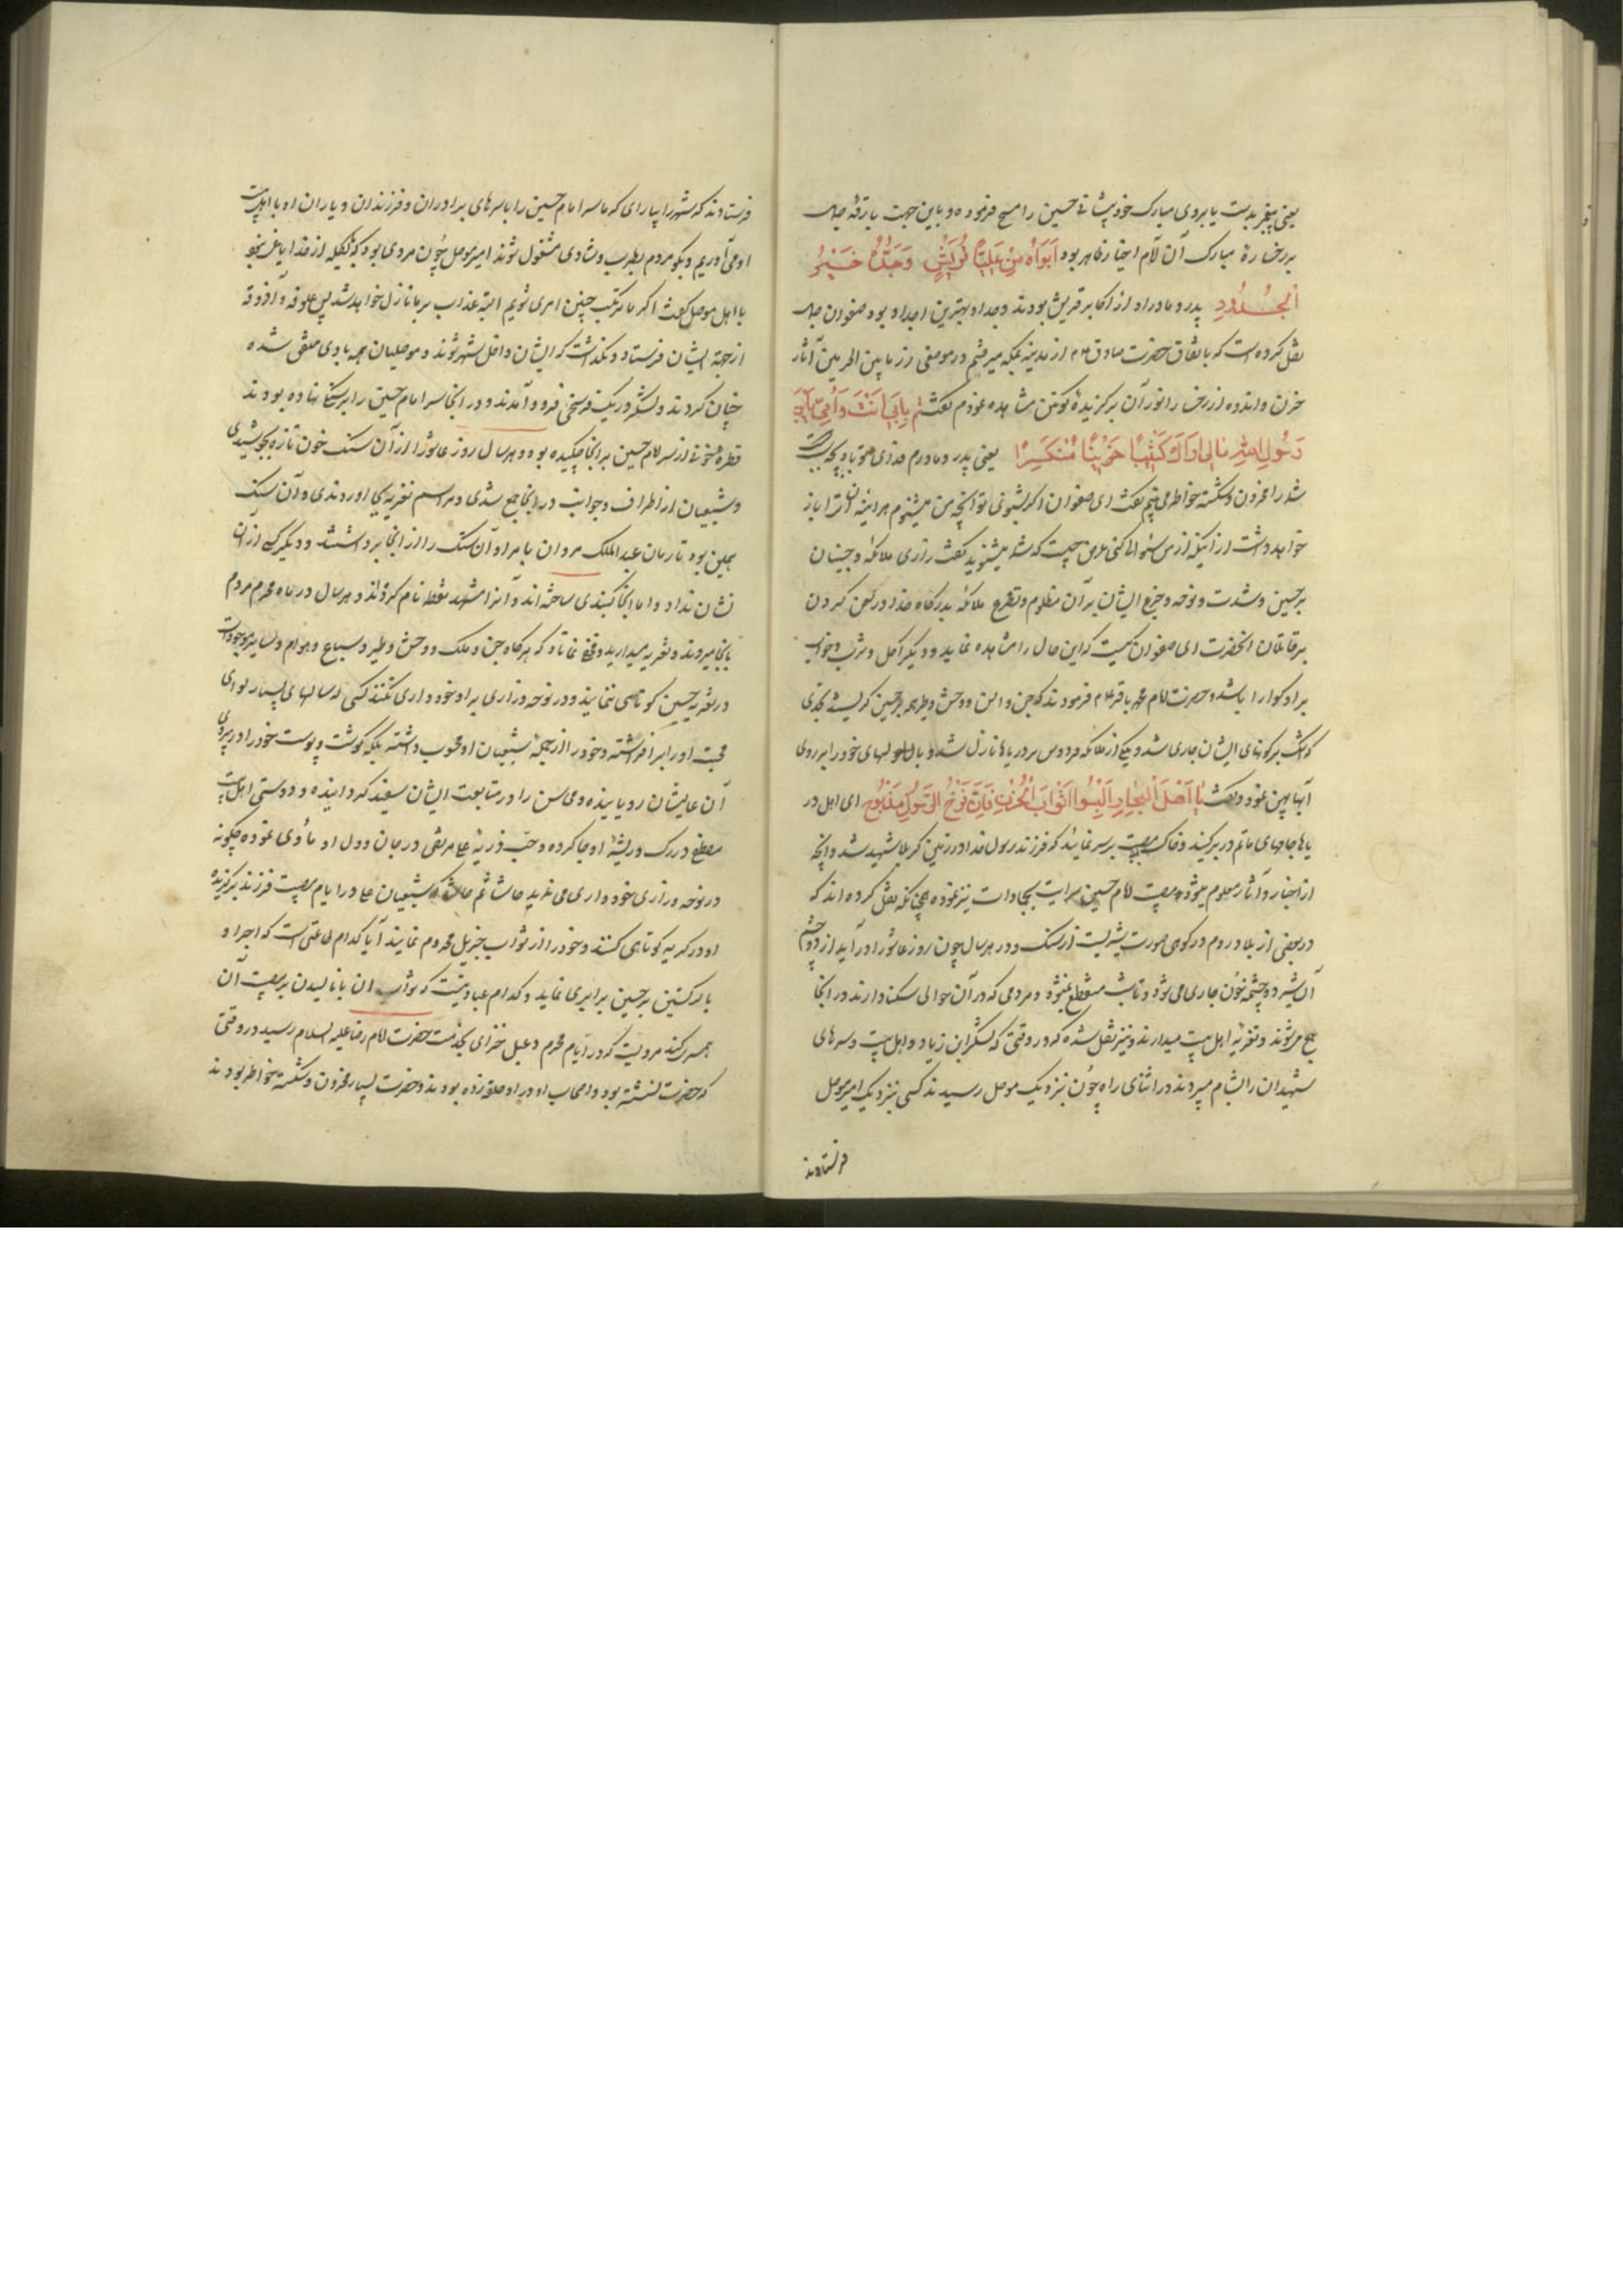 یعنی پیغمبر بدست یا بروی مبارک خود پیشانی حسین را مسح فرموده و باین جهت بارقه جمال
بر رخساره مبارک آن امام اخیار ظاهر بود اَبَواهُ مِن عَلیا قُرَیشٍ وَ جَدُّهُ خَیرُ
الجُدُودِ پدر و مادر او از اکابر قریش بودند و جد او بهترین اجداد بود صفوان جمال
نقل کرده است که باتفاق حضرت صادق ع م از مدینه بمکه میرفتم در موضعی از مابین الحرمین آثار
حزن و اندوه از رخسار انور آن برگزیده کونین مشاهده نمودم گفتم بِاَبی اَنتَ وَ اُمّی یَابنَ
رَسُولِ اللهِ مالی اَراکَ کَئیبًا حَزینًا مُنکَسِرًا یعنی پدر و مادرم فدای تو باد چه
شما را محزون و شکسته خاطر می بینم گفت ای صفوان اگر بشنوی تو آنچه من میشنوم هر آینه ترا باز
خواهد داشت از اینکه از من سئوالی کنی عرض چیست که شما میشنوید گفت زاری ملائکه و جنیان
بر حسین و شدت و نوحه و جزع ایشان بر آن مظلوم و تضرع ملائکه بدرگاه خدا در لعن کردن
بر قاتلان آنحضرت ای صفوان کیست که این حال را مشاهده نماید و دیگر اکل و شرب و خواب
بر او گوارا باشد و حضرت امام محمد باقر ع م فرمودند که جن و انس و وحش و طیر همه بر حسین گریستند بحدی
که اشک بر گونهای ایشان جاری شد و یکی از ملائکه فردوس بر دریاها نازل شد و بالهای خود را بر روی
آنها پهن نمود و گفت یا اَهلَ البِحارِ اَلبِسُوا اَثوابَ الحُزنِ فَاِنَّ فَرخَ الرَّسُولِ مَذبُوحٌ ای اهل در
یاها جامهای ماتم در بر کنید و خاک مصیبت بر سر نمائید که فرزند رسول خدا در زمین کربلا شهید شد و آنچه
از اخبار و آثار معلوم میشود مصیبت امام حسین سرایت بجمادات نیز نموده همچنانکه نقل کرده اند که
در بعضی از بلاد روم در کوهی صورت شیریست از سنگ و در هر سال چون روز عاشورا در آید از دو چشم
آن شیر دو چشمه خون جاری می شود و تا شب منقطع نمیشود و مردمی که در آن حوالی سکنا دارند در آنجا
جمع میشوند و تعزیه اهل بیت میدارند و نیز نقل شده که در وقتی که لشکر ابن زیاد و اهل بیت و سرهای
شهیدان را بشام میبردند در اثنای راه چون بنزدیک موصل رسیدند کسی بنزدیک امیر موصل
فرستادند
فرستادند که شهر را بیارای که ما سر امام حسین را با سرهای برادران و فرزندان و یاران او با اهل بیت
او می آوریم و بگو مردم بطرب و شادی مشغول شوند امیر موصل چون مردی بود که از خدا
با اهل موصل گفت اگر ما مرتکب چنین امری شویم البته عذاب بر ما نازل خواهد شد پس علوفه و آذوقه
از جهة ایشان فرستاد و نگذاشت که ایشان داخل شهر شوند و موصلیان همه با وی متفق شده
چنان کردند و لشکر در یک فرسخی فرود آمدند و در آنجا سر امام حسین را بر سنگی نهاده بودند
قطره خونی از سر امام حسین بر آنجا چکیده بود و هر سال روز عاشورا از آن سنگ خون تازه بجوشیدی
و شیعیان از اطراف و جوانب در آنجا جمع شدی و مراسم تعزیه بجا آوردندی و آن سنگ
همین بود تا زمان عبدالملک مروان بامر او آن سنگ را از آنجا برداشتند و دیگر کسی از آن
نشان نداد و اما آنجا گنبدی ساخته اند و آنرا مشهد نقطه نام کرده اند و هر سال در ماه محرم مردم
بآنجا میروند و تعزیه میدارند و مخفی نماناد که هر گاه جن و ملک و وحش و طیر و سباع و هوام و سایر موجودات
در تعزیه حسین کوتاهی ننمایند و در نوحه و زاری بر او خودداری نکنند کسی که سالهای بسیار لوای
محبت او را برافراشته و خود را از جمله شیعیان او محسوب داشته بلکه گوشت و پوست خود را در پیروی
آن عالیشان رویانیده و محاسن را در متابعت ایشان سفید گردانیده و دوستی اهل بیت
مصطفی در رگ و ریشه او جا کرده و حب ذریه علی مرتضی در جان و دل او مأوی نموده چگونه
در نوحه و زاری خودداری می نماید حاشا ثم حاشا که شیعیان علی در ایام مصیبت فرزند برگزیده
او در گریه کوتاهی کنند و خود را از ثواب جزیل محروم نمایند آیا کدام طاعتی است که اجر او
با گریستن بر حسین برابری نماید و کدام عبادتیست که ثواب آن با نالیدن بر مصیبت آن
همسری کند مرویست که در ایام محرم دعبل خزاعی بخدمت حضرت امام رضا علیه السلام رسید در وقتی
که حضرت نشسته بود و اصحاب او در او حلقه زده بودند و حضرت بسیار محزون و شکسته خاطر بودند